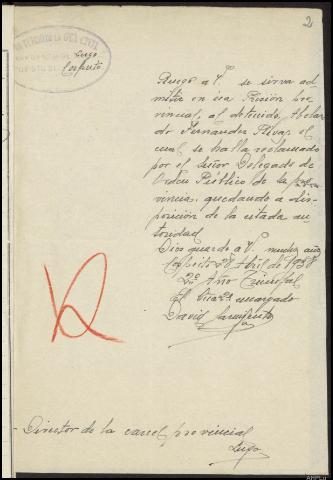 2
Lugo
Corgo
Ruego a V. se sirva ad-
mitir en esa Prisión pro-
vincial, al detenido, Abelar-
do Fernández Rivas el
cual se halla reclamado
por el Señor Delegado de
Orden Público de la pro-
vincia, quedando a dis-
posición de la citada au-
toridad
Dios guarde a V. muchos años
28 Abril de 1938
2º Año Triunfal
El encargado
David Sarmiento
Director de la carcel provincial
Lugo